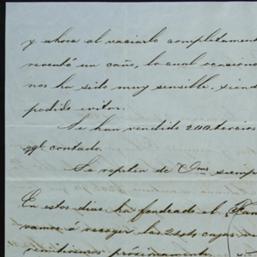 y ahora al vaciarlo completament
reventó un caño, lo cual ocasion
nos ha sido muy sensible, siend
podido evitar.
Se han vendido 200 tercios
contado.
Se repiten de Vms siemp
En estos dias ha fondeado el
vamos á recoger las 2 cajas
remitiremos próximamente